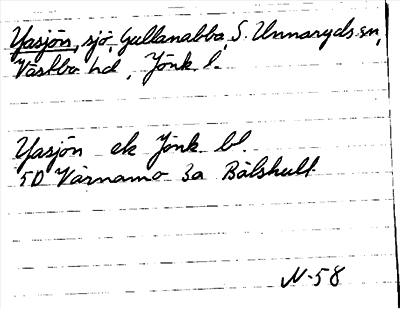 Yasjön, sjö, Gullanabba, S. Unnaryds sn,
Västbo hd, Jönk. l.
Yasjön ek Jönk. bl.
5D Värnamo 3a Bälshult
N-58